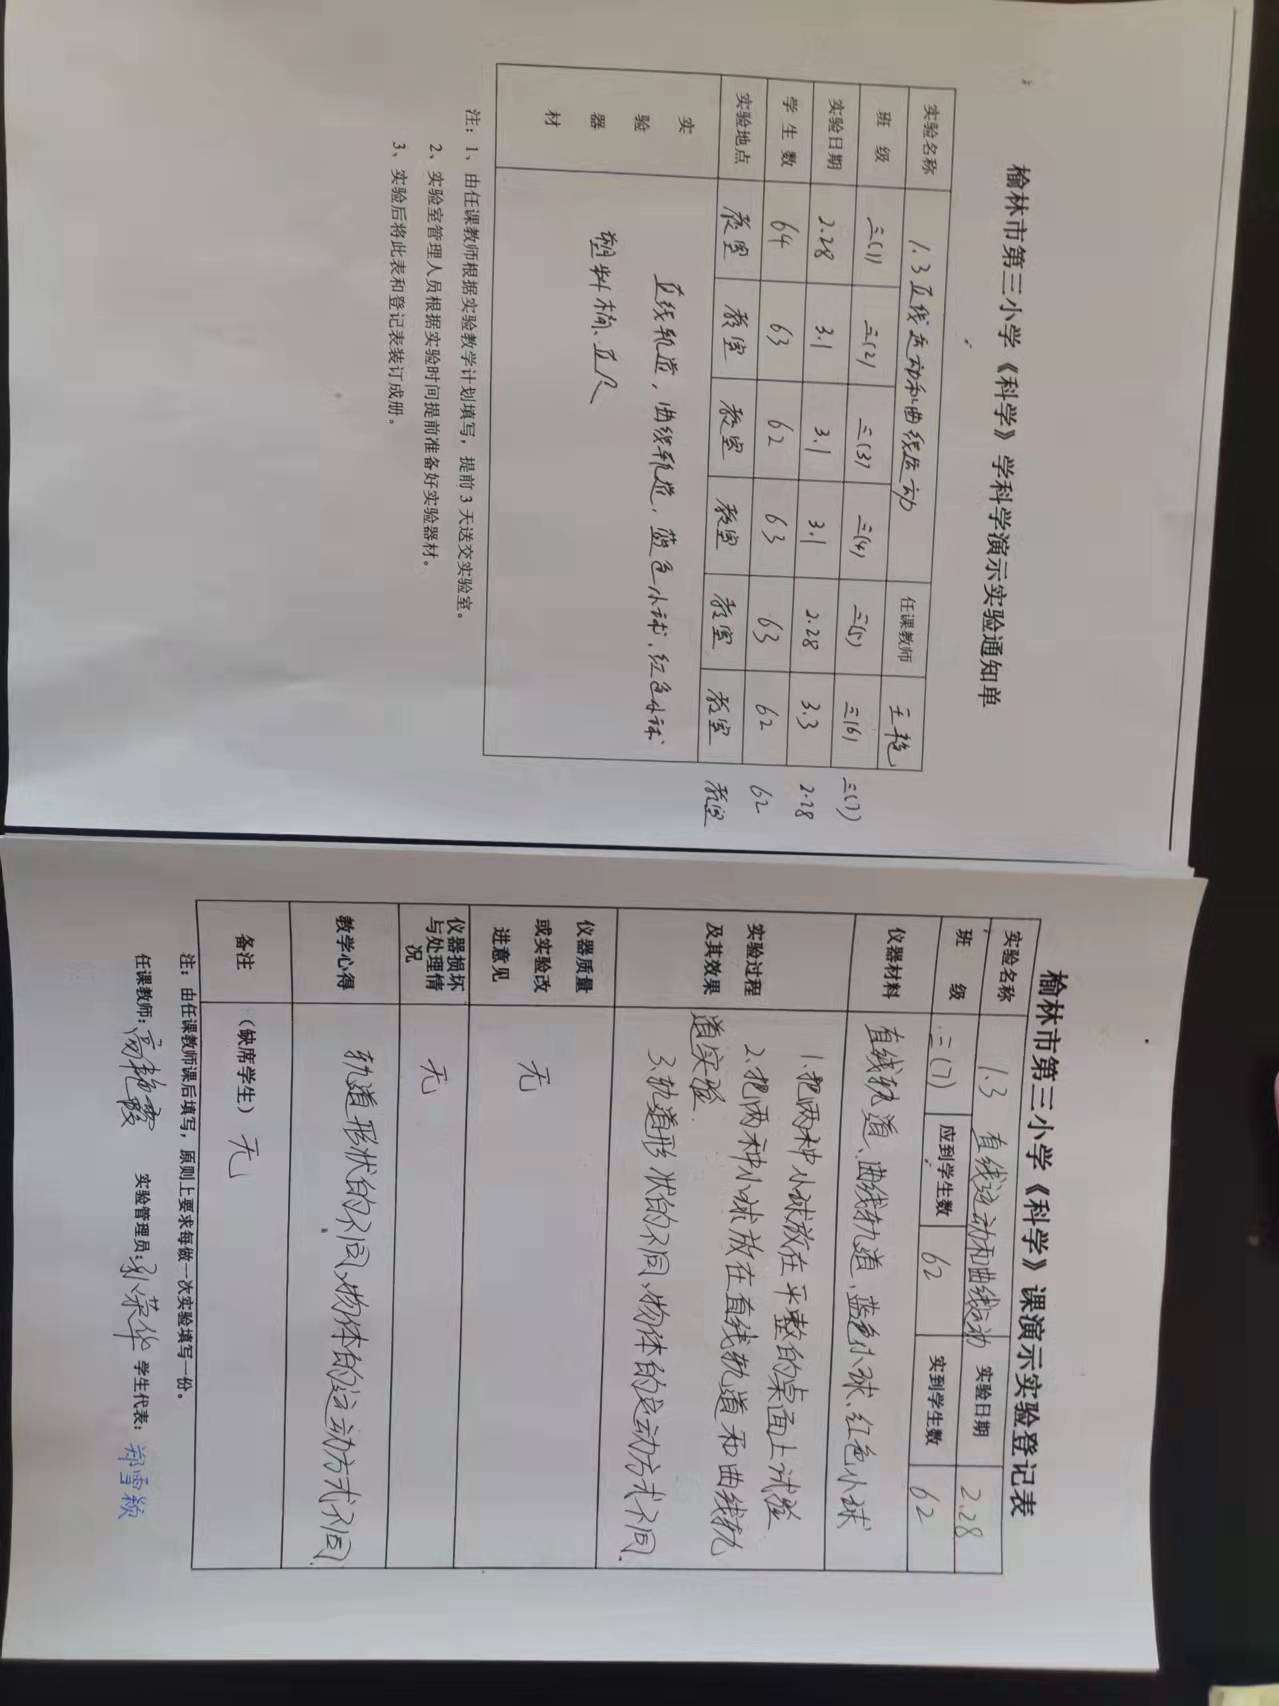 榆林市第三小学《科学》学科学演示实验通知单
实验名称 1.3直线运动和曲线运动 任课教师 王艳
班 级 三(1) 三(2) 三(3) 三(4) 三(5) 三(6) 三(7)
实验日期 2.28 3.1 3.1 3.1 2.28 3.3 2.28
学生数 64 63 62 63 63 62 62
实验地点 教室 教室 教室 教室 教室 教室 教室
实验器材 直线轨道,曲线轨道,蓝色小球、红色小球
塑料桶、直尺
注:1、由任课教师根据实验教学计划填写,提前3天送交实验室。
2、实验室管理人员根据实验时间提前准备好实验器材。
3、实验后将此表和登记表装订成册。
榆林市第三小学《科学》课演示实验登记表
实验名称 1.3 直线运动和曲线运动 实验日期 2.28
班 级 三(7) 应到学生数 62 实到学生数 62
仪器材料 直线轨道、曲线轨道、蓝色小球、红色小球
实验过程及其效果 1.把两种小球放在平整的桌面上试验
2.把两种小球放在直线轨道和曲线轨
道实验.
3.轨道形状的不同、物体的运动方式不同.
仪器质量或实验改进意见 无
仪器损坏与处理情况 无
教学心得 轨道形状的不同、物体的运动方式不同.
备注 (缺席学生) 无
注:由任课教师课后填写,原则上要求每做一次实验填写一份。
任课教师:高艳霞 实验管理员:孙荣华 学生代表:郑雪颖